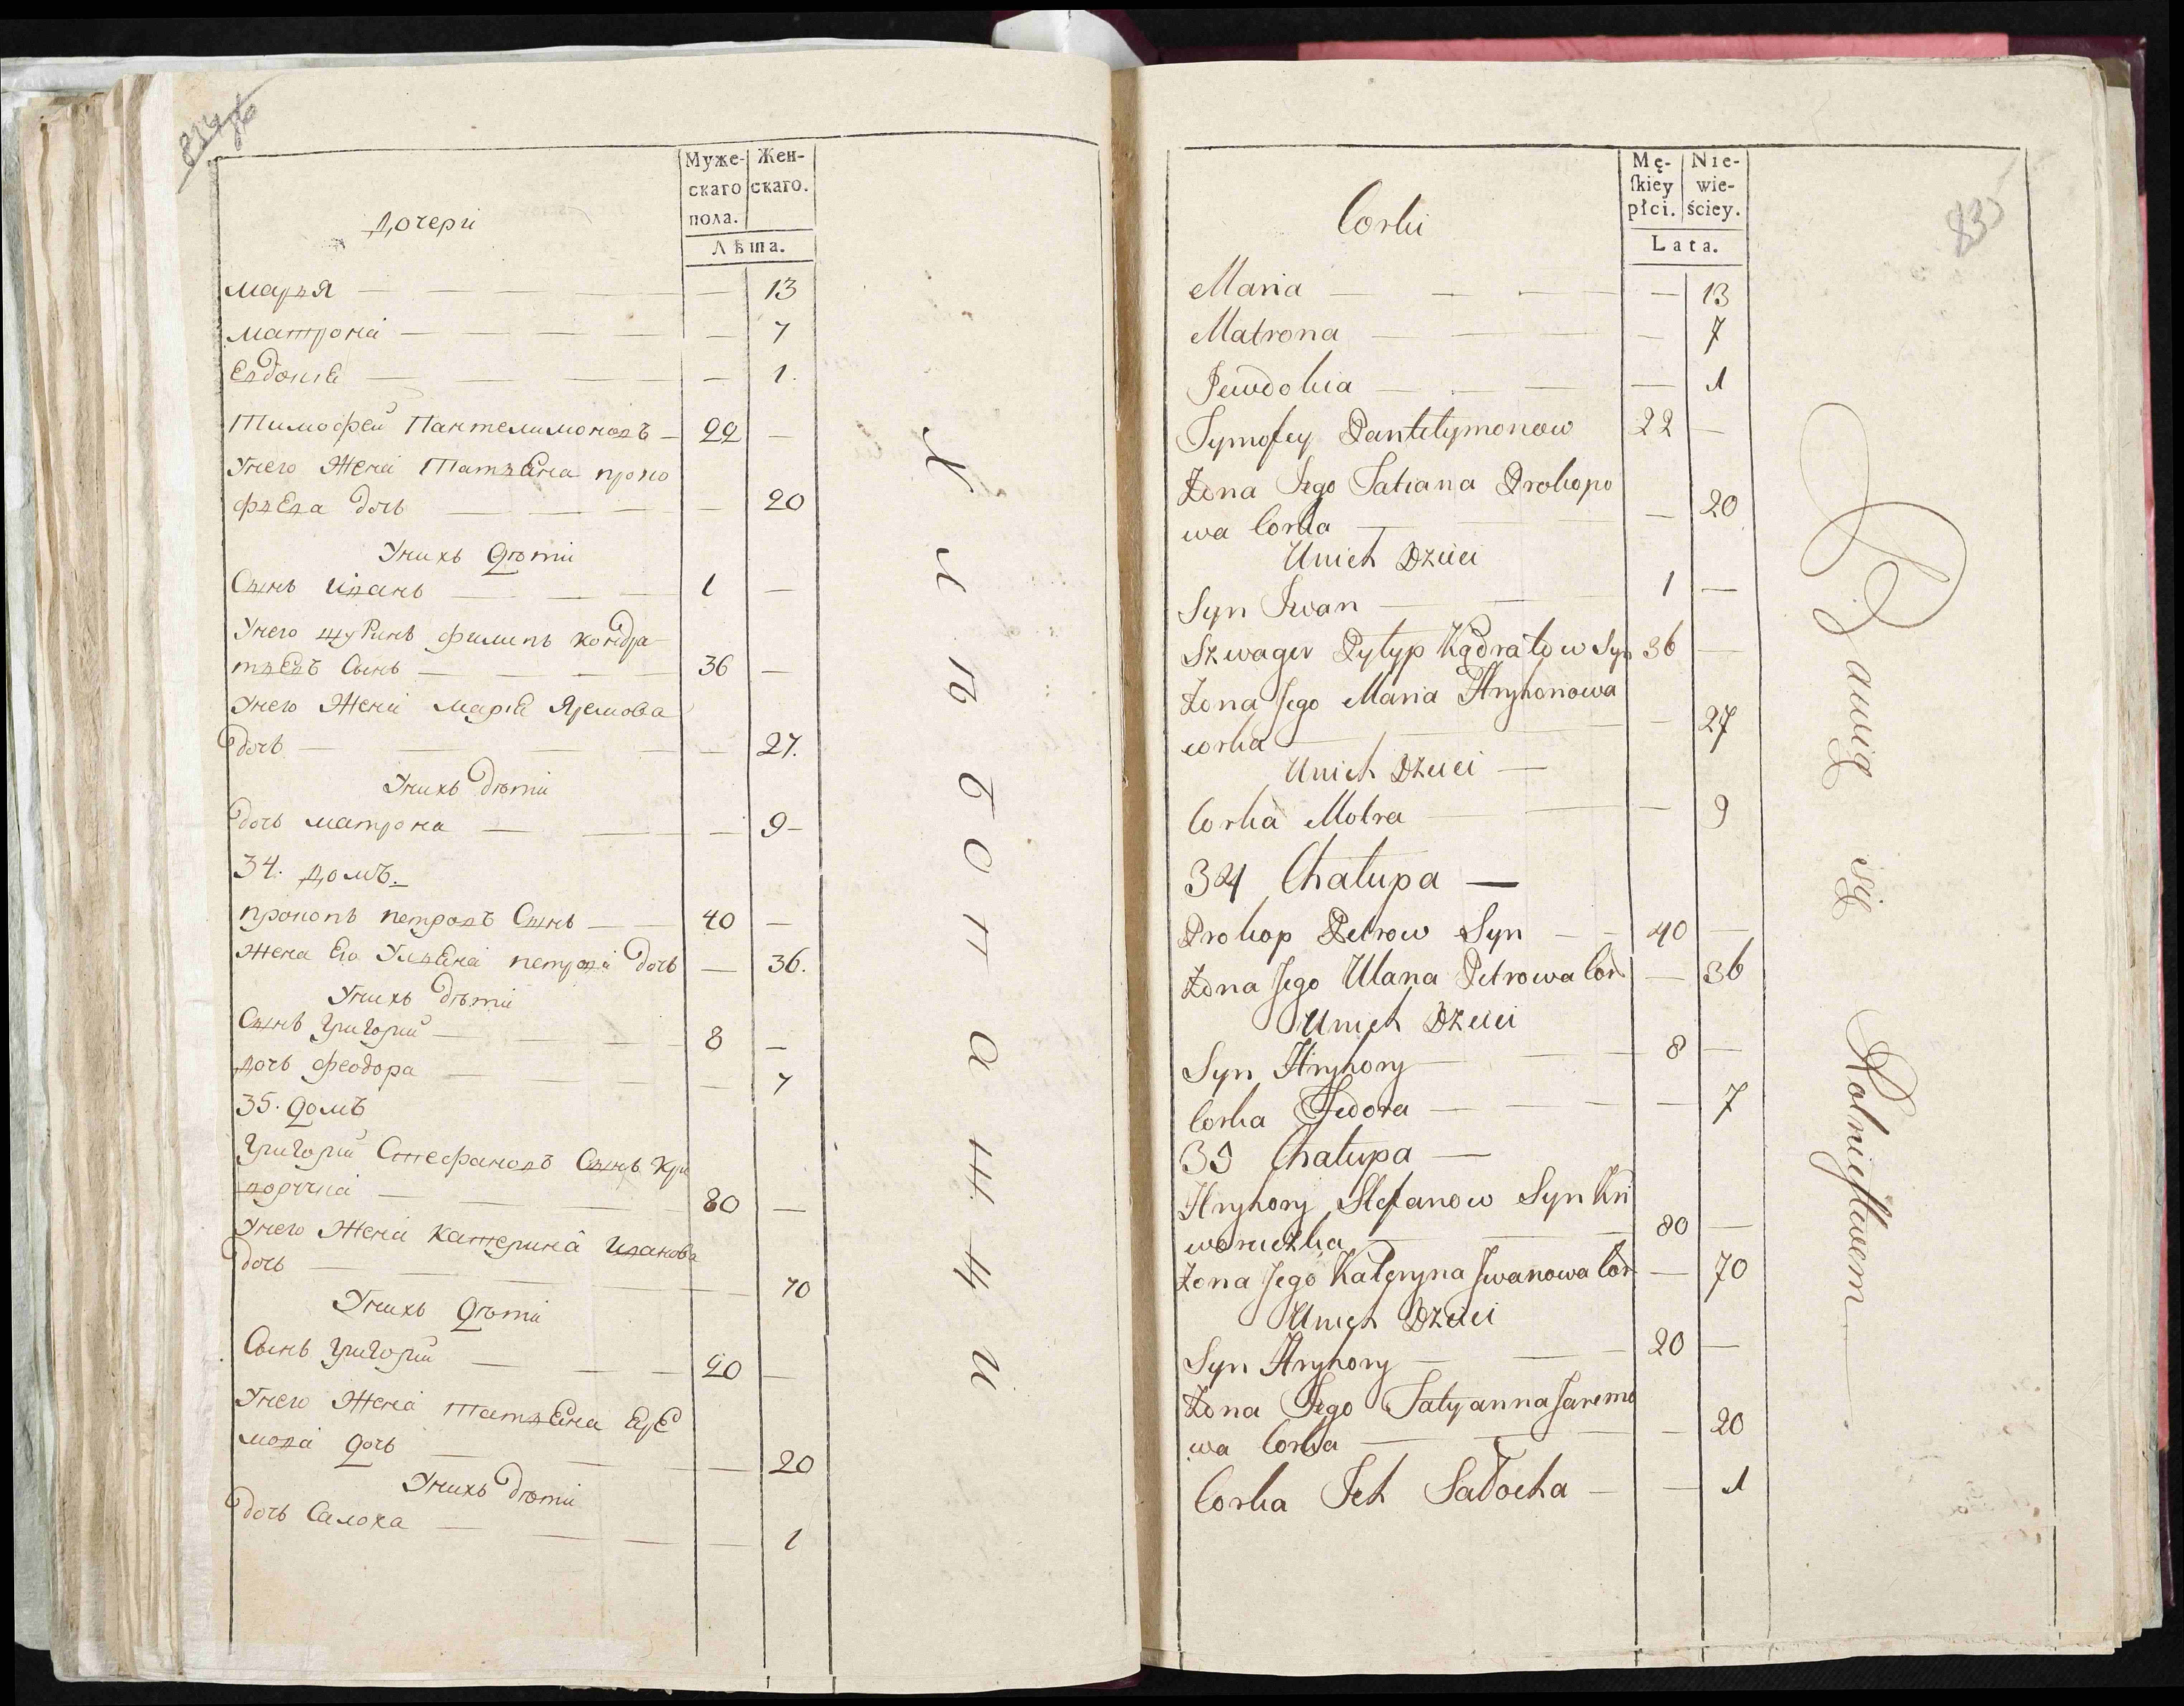 Муже- Жен-
скаго скаго.
пола.
Лѣта.
Дочери
Марья — — — — — 13
Матрона — — — — — 7
Евдокіѣ — — — — — 1.
Тимофей Пантелимоновъ — 22 —
Унего Жена Татьѣна проко
фьева дочь — — — — 20
Унихъ дѣти
Сынъ Иванъ — — — 1 —
Унего шуринъ филипъ кондра
тьевъ Сынъ — — — 36 —
Унего Жена Маріѣ Яремова
дочь — — — — 27.
Унихъ дѣти
дочь матрона — — — 9-
34. домъ.
прокопъ петровъ Сынъ — — 40 —
Жена Его Ульѣна петрова дочь — 36.
Унихъ дѣти
Сынъ Григорий — — — 8 —
дочь феодора — — — — 7
35. домъ
Григорий Стефановъ Сынъ Кри
воручка — — — 80 —
Унего Жена Катерина Иванова
дочь — — — — 70
Унихъ дѣти
Сынъ Григорий — — — 20 —
Унего Жена Татьѣна Ере
мова дочь — — — — 20
Унихъ дѣти
дочь Салоха — — — — 1
Хлѣбопашци
83
Mę- Nie-
ſkiey wie-
płci. ściey.
Lata.
Corki
Maria — — — — — 13
Matrona — — — — 7
Jewdokia — — — — 1
Tymofey Pantelymonow 22 —
Zona Jego Tatiana Prokopo
wa Corka — — — 20
Unich Dzieci
Syn Jwan — — 1 —
Szwagier Pylyp Kądratow Syn 36 —
Zona Jego Maria Hryhorowa
corka — — — 27
Unich Dzieci —
Corka Motra — — — 9
34 Chałupa —
Prokop Petrow Syn — — 40 —
Zona Jego Ulana Petrowa Cor — 36
Unich Dzieci
Syn Hryhory — — — 8 —
Corka Fedora — — — — 7
35 Chałupa —
Hryhory Stefanow Syn Kri
woruczka — — — 80 —
Zona Jego Kateryna Jwanowa Cor — 70
Unich Dzieci
Syn Hryhory — — — 20 —
Zona Jego Tatyanna Jaremo
wa Corka — — — 20
Corka Jch Sałocha — — 1
Bawią się Rolnictwem —